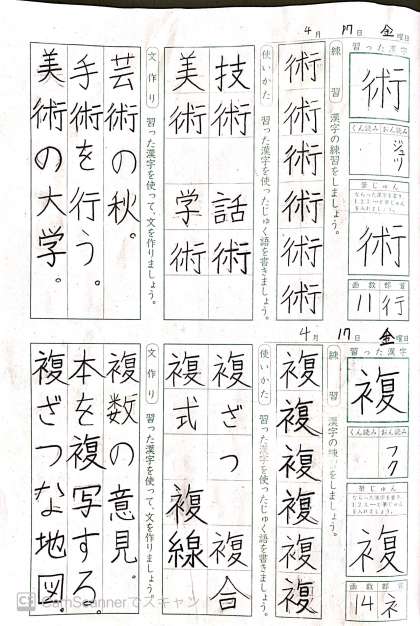 4月 17日 金曜日
習った漢字
術
くん読み おん読み
ジュツ
筆じゅん
術
画数 部首
11 行
練習 漢字の練習をしましょう。
術術術術術術
使いかた 習った漢字を使ったじゅく語を書きましょう。
技術 話術
美術 学術
文作り 習った漢字を使って、文を作りましょう。
芸術の秋。
手術を行う。
美術の大学。
4月 17日 金曜日
習った漢字
複
くん読み おん読み
フク
筆じゅん
複
画数 部首
14 ネ
練習 漢字の練習をしましょう。
複複複複複複
使いかた 習った漢字を使ったじゅく語を書きましょう。
複ざつ 複合
複式 複線
文作り 習った漢字を使って、文を作りましょう。
複数の意見。
本を複写する。
複ざつな地図。
CS CamScannerでスキャン